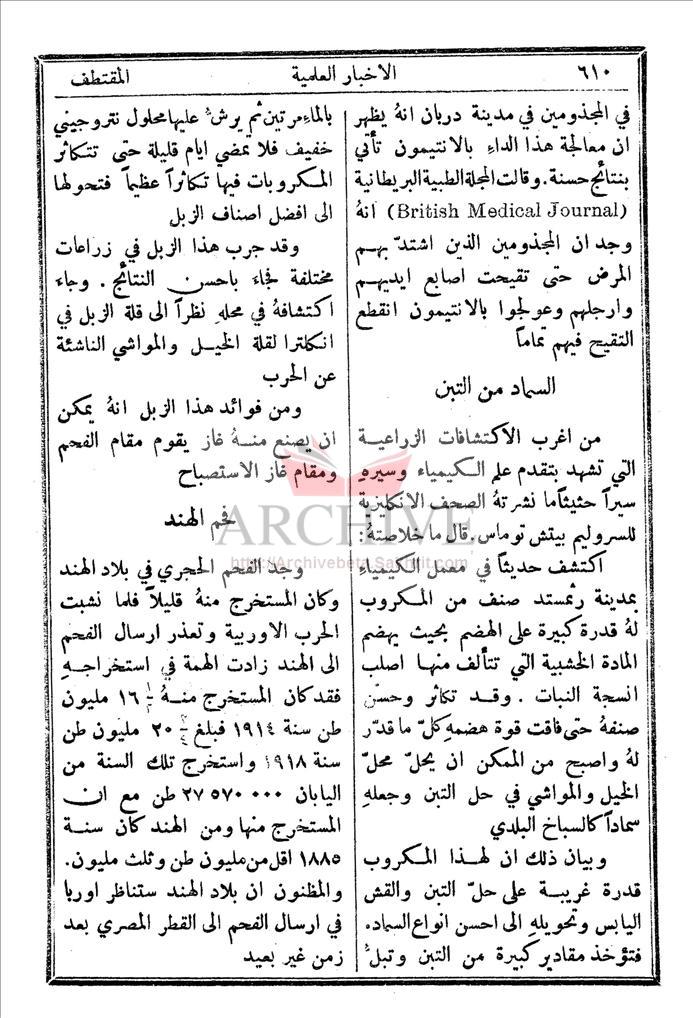 ٦١٠
الاخبار العلمية
المقتطف
في المجذومين في مدينة دربان انهُ يظهر
ان معالجة هذا الداء بالانتيمون تأتي
بنتائج حسنة. وقالت المجلة الطبية البريطانية
(British Medical Journal) انهُ
وجد ان المجذومين الذين اشتدّ بهم
المرض حتى تقيحت اصابع ايديهم
وارجلهم وعولجوا بالانتيمون انقطع
التقيح فيهم تماماً
السماد من التبن
من اغرب الاكتشافات الزراعية
التي تشهد بتقدم علم الكيمياء وسيرهِ
سيراً حثيثاً ما نشرتهُ الصحف الانكليزية
للسر وليم بيتش توماس. قال ما خلاصتهُ:
اكتشف حديثاً في معمل الكيمياء
بمدينة رثمستد صنف من المكروب
لهُ قدرة كبيرة على الهضم بحيث يهضم
المادة الخشبية التي تتألف منها اصلب
انسجة النبات. وقد تكاثر وحسّن
صنفهُ حتى فاقت قوة هضمهِ كلّ ما قدّر
لهُ واصبح من الممكن ان يحلّ محلّ
الخيل والمواشي في حل التبن وجعلهِ
سماداً كالسباخ البلدي
وبيان ذلك ان لهذا المكروب
قدرة غريبة على حلّ التبن والقش
اليابس وتحويلهِ الى احسن انواع السماد.
فتؤخذ مقادير كبيرة من التبن وتبلُّ
بالماء مرتين ثم يرشُّ عليها محلول نتروجيني
خفيف فلا يمضي ايام قليلة حتى تتكاثر
المكروبات فيها تكاثراً عظيماً فتحولها
الى افضل اصناف الزبل
وقد جرب هذا الزبل في زراعات
مختلفة فجاء باحسن النتائج. وجاء
اكتشافهُ في محلهِ نظراً الى قلة الزبل في
انكلترا لقلة الخيل والمواشي الناشئة
عن الحرب
ومن فوائد هذا الزبل انهُ يمكن
ان يصنع منهُ غاز يقوم مقام الفحم
ومقام غاز الاستصباح
فحم الهند
وجد الفحم الحجري في بلاد الهند
وكان المستخرج منهُ قليلاً فلما نشبت
الحرب الاوربية وتعذر ارسال الفحم
الى الهند زادت الهمة في استخراجهِ
فقد كان المستخرج منهُ ١٦ مليون
طن سنة ١٩١٤ فبلغ ٢٠ مليون طن
سنة ١٩١٨ واستخرج تلك السنة من
اليابان ٢٧٥٧٠٠٠٠ طن مع ان
المستخرج منها ومن الهند كان سنة
١٨٨٥ اقل من مليون طن وثلث مليون.
والمظنون ان بلاد الهند ستناظر اوربا
في ارسال الفحم الى القطر المصري بعد
زمن غير بعيد
ARCHIVE
http://Archivebeta.Sakhrit.com